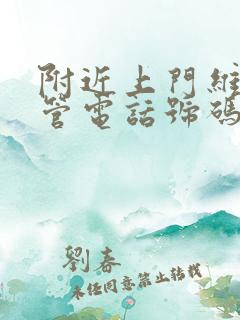 附近上門維
管電話號碼
劉春
未經同意禁止轉載